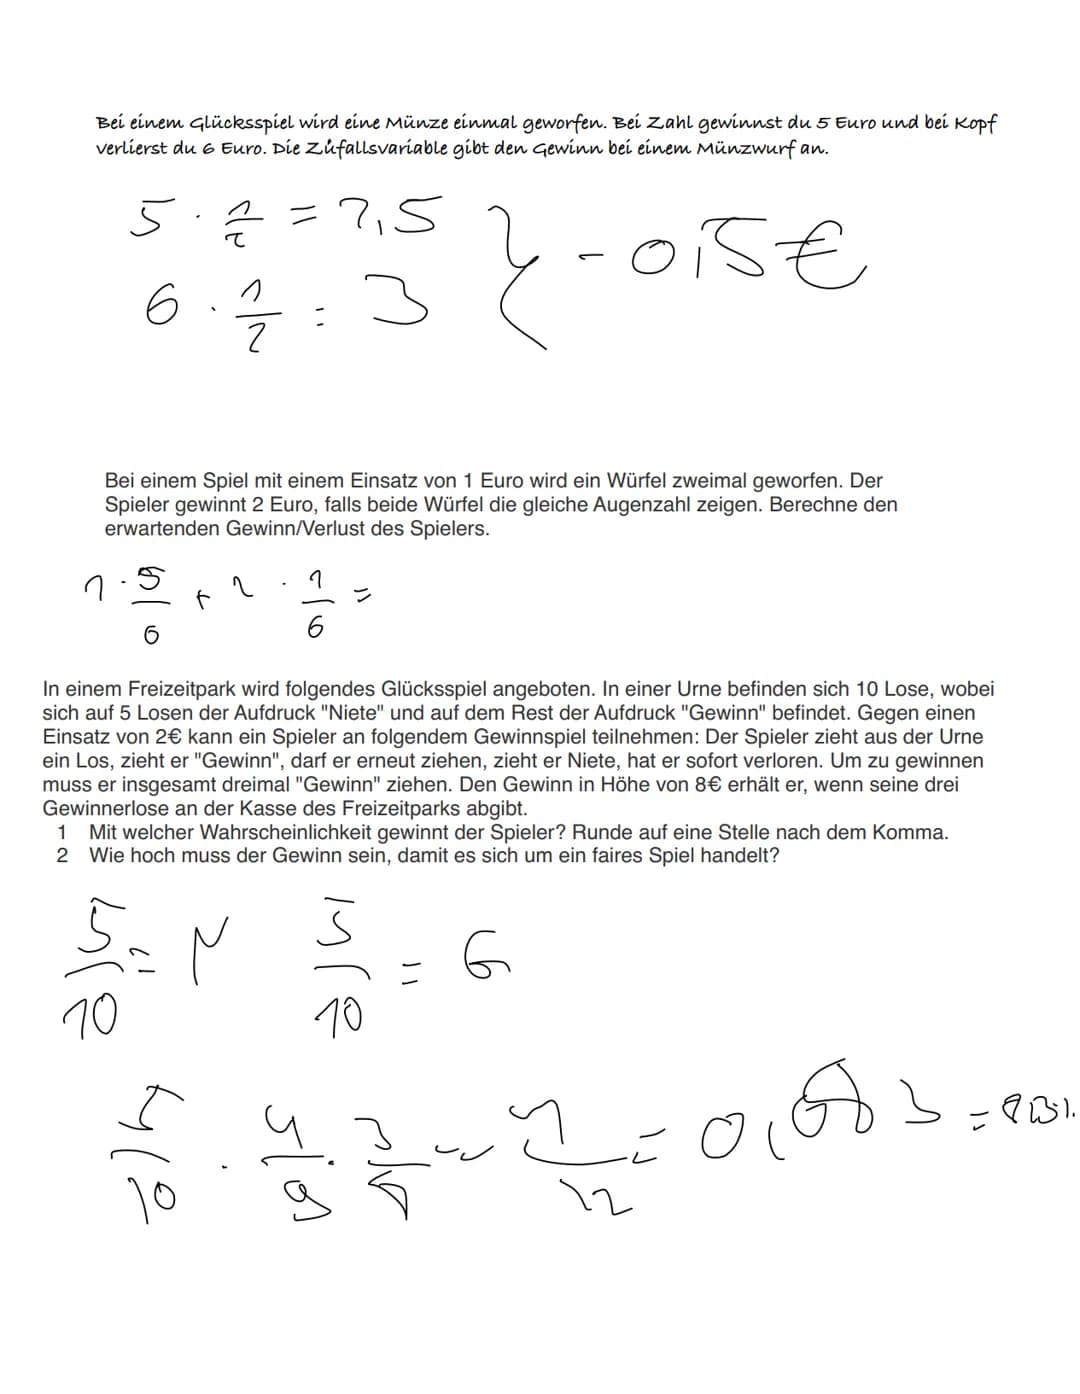 Bei einem Glücksspiel wird eine Münze einmal geworfen. Bei Zahl gewinnst du 5 Euro und bei Kopf
verlierst du 6 Euro. Die Zufallsvariable gibt den Gewinn bei einem Münzwurf an.
5 · 1/2 = 2,5
6 · 1/2 = 3
} - 0,5 €
Bei einem Spiel mit einem Einsatz von 1 Euro wird ein Würfel zweimal geworfen. Der
Spieler gewinnt 2 Euro, falls beide Würfel die gleiche Augenzahl zeigen. Berechne den
erwartenden Gewinn/Verlust des Spielers.
1 · 5/6 + 2 · 1/6 =
In einem Freizeitpark wird folgendes Glücksspiel angeboten. In einer Urne befinden sich 10 Lose, wobei
sich auf 5 Losen der Aufdruck "Niete" und auf dem Rest der Aufdruck "Gewinn" befindet. Gegen einen
Einsatz von 2€ kann ein Spieler an folgendem Gewinnspiel teilnehmen: Der Spieler zieht aus der Urne
ein Los, zieht er "Gewinn", darf er erneut ziehen, zieht er Niete, hat er sofort verloren. Um zu gewinnen
muss er insgesamt dreimal "Gewinn" ziehen. Den Gewinn in Höhe von 8€ erhält er, wenn seine drei
Gewinnerlose an der Kasse des Freizeitparks abgibt.
1 Mit welcher Wahrscheinlichkeit gewinnt der Spieler? Runde auf eine Stelle nach dem Komma.
2 Wie hoch muss der Gewinn sein, damit es sich um ein faires Spiel handelt?
5/10 = N 5/10 = G
5/10 · 4/9 · 3/8 = 1/12 = 0,083 = 8,3%